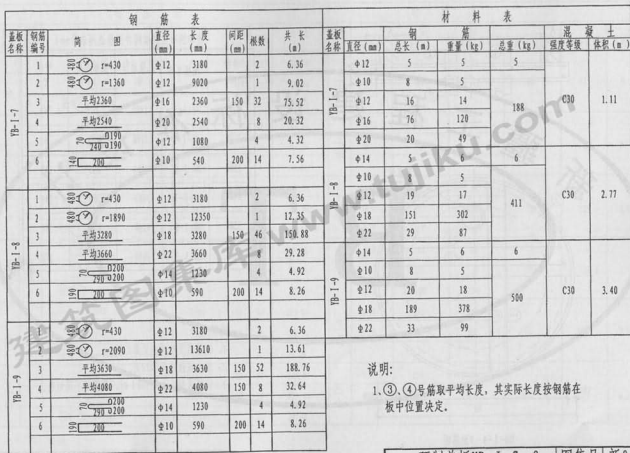 钢 筋 表
盖板名称 钢筋编号 简 图 直径(mm) 长 度(mm) 间距(mm) 根数 共 长(m)
YB-1-7
1 480 r=430 Φ12 3180 2 6.36
2 480 r=1360 Φ12 9020 1 9.02
3 平均2360 Φ16 2360 150 32 75.52
4 平均2540 Φ20 2540 8 20.32
5 70 190 240 190 Φ12 1080 4 4.32
6 140 200 Φ10 540 200 14 7.56
YB-1-8
1 480 r=430 Φ12 3180 2 6.36
2 480 r=1890 Φ12 12350 1 12.35
3 平均3280 Φ18 3280 150 46 150.88
4 平均3660 Φ22 3660 8 29.28
5 70 200 290 200 Φ14 1230 4 4.92
6 190 200 Φ10 590 200 14 8.26
YB-1-9
1 480 r=430 Φ12 3180 2 6.36
2 480 r=2090 Φ12 13610 1 13.61
3 平均3630 Φ18 3630 150 52 188.76
4 平均4080 Φ22 4080 150 8 32.64
5 70 200 290 200 Φ14 1230 4 4.92
6 190 200 Φ10 590 200 14 8.26
材 料 表
盖板名称 钢 筋 混 凝 土
直径(mm) 总长(m) 重量(kg) 总重(kg) 强度等级 体积(m)
YB-1-7
Φ12 5 5 5
Φ10 8 5 188 C30 1.11
Φ12 16 14
Φ16 76 120
Φ20 20 49
YB-1-8
Φ14 5 6 6
Φ10 8 5 411 C30 2.77
Φ12 19 17
Φ18 151 302
Φ22 29 87
YB-1-9
Φ14 5 6 6
Φ10 8 5 500 C30 3.40
Φ12 20 18
Φ18 189 378
Φ22 33 99
说明:
1、③、④号筋取平均长度,其实际长度按钢筋在
板中位置决定。
建筑图集库 www.tujiku.com
图集号